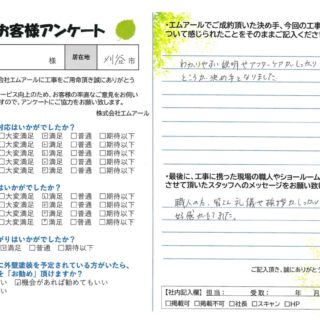 お客様アンケート
様 居在地 刈谷市
会社エムアールに工事をご用命頂き誠にありがとう
ービス向上のため、お客様の率直なご意見をお伺い
すので、アンケートにご協力をお願い致します。
株式会社エムアール
対応はいかがでしたか？
□大変満足 ☑満足 □普通 □期待以下
□大変満足 ☑満足 □普通 □期待以下
□大変満足 ☑満足 □普通 □期待以下
□大変満足 ☑満足 □普通 □期待以下
□大変満足 ☑満足 □普通 □期待以下
がりはいかがでしたか？
□大変満足 ☑満足 □普通 □期待以下
に外壁塗装を予定されている方がいたら、
を「お勧め」頂けますか？
さい ☑機会があれば勧めてもいい
い
・エムアールでご成約頂いた決め手、今回の工事
ついて感じられたことをそのままご記入ください
わかりやすい説明やアフターケアがしっかり
ところが決め手となりました。
・最後に、工事に携った現場の職人やショールーム
させて頂いたスタッフへのメッセージをお願い致
職人さん、皆さん礼儀や挨拶がしっかり
好感がもてました。
ご記入頂き、誠にありがとう
【社内記入欄】担当： 受取： 年 月
□掲載可 □掲載不可 □社長 □スキャン □HP